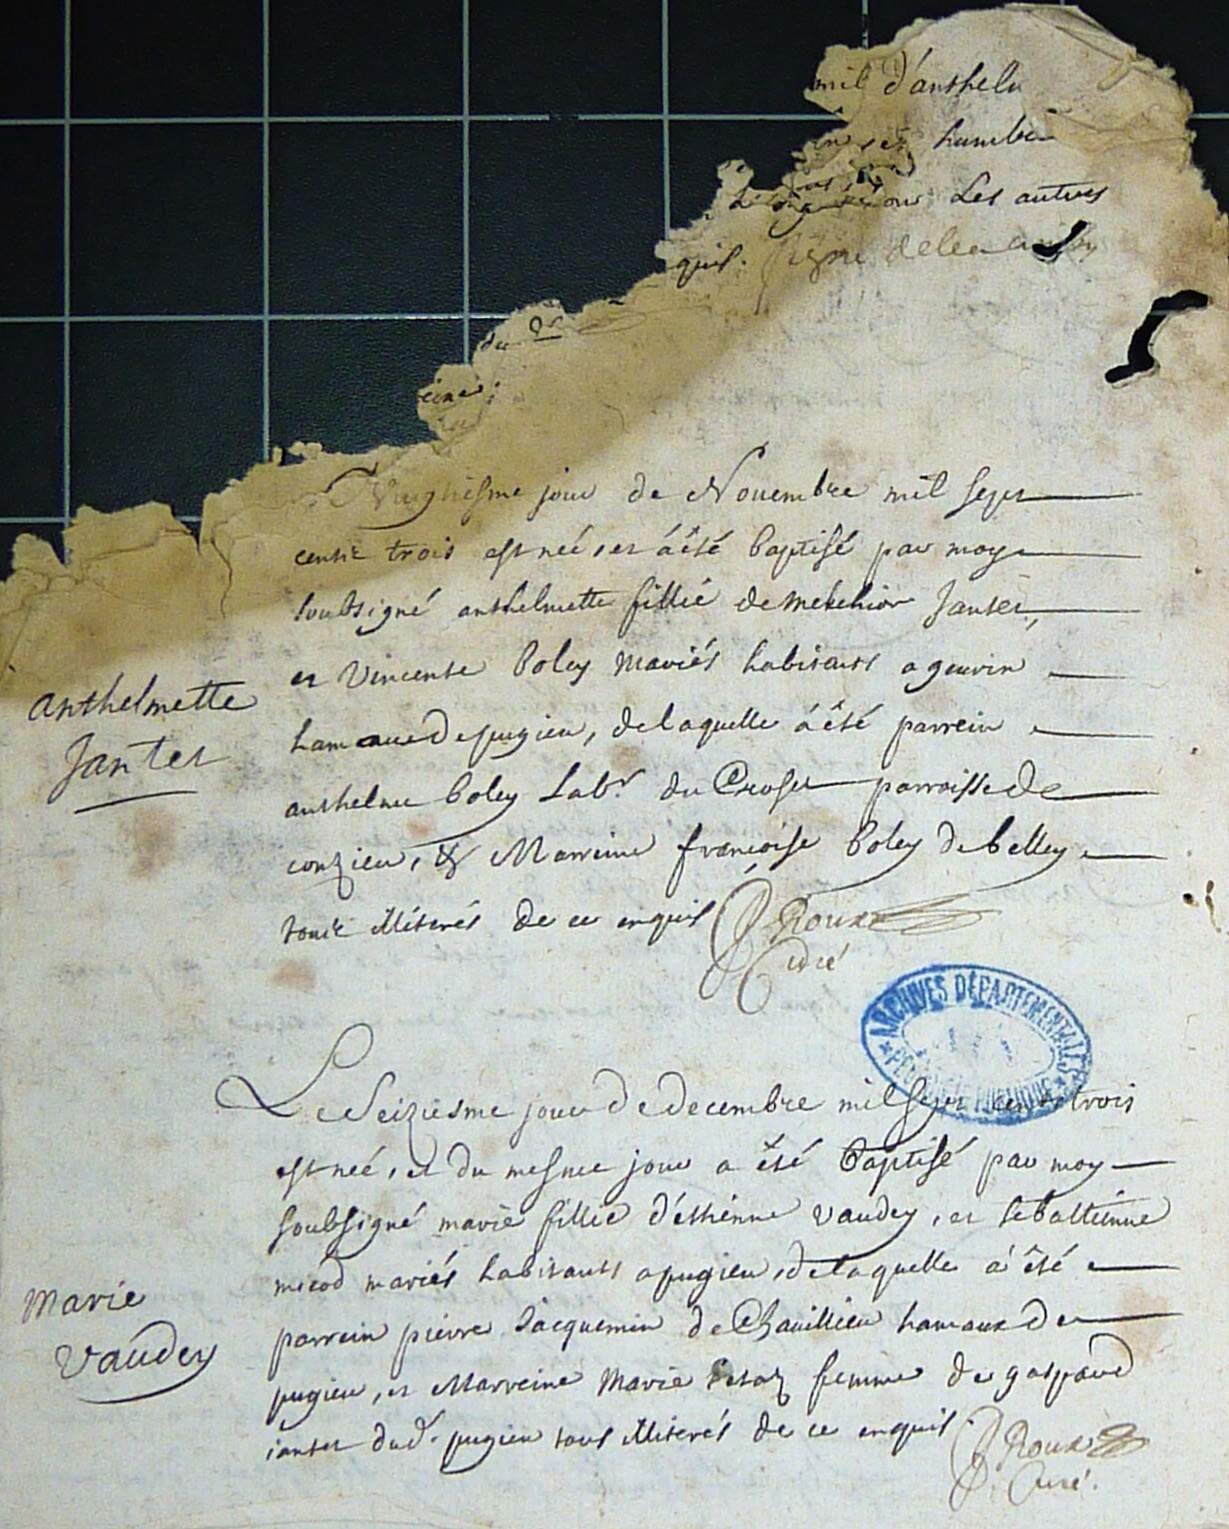 mil d'anthelm
humbe
Les autres
quis. signe
du
eine;
Vinghiesme jour de Novembre mil sept
cents trois est neé, et á été baptisé par moy
soubsigné anthelmette fillie de Melchior Jantet,
et Vincente boley mariés habitants a geuvin
hameaux de pugieu, de laquelle á été parrein
anthelme boley Labr. du Creoset parroisse de
conzieu, & Marreine françoise boley de belley
touts illiterés de ce enquis Roux
Curé
anthelmette
Jantet
Le Seiziesme jour de decembre mil sept cents trois
est neé, et du mesme jour a été baptisé par moy
soubsigné marie fillie d'éthienne vaudey, et sebastienne
micod mariés habitants a pugieu, de laquelle á été
parrein pierre Jacquemin de Chavillieu hameaux de
pugieu, et Marreine Marie femme de gaspard
iantet dud. pugieu tous illiterés de ce enquis. Roux
Curé.
Marie
Vaudey
ARCHIVES DÉPARTEMENTALES